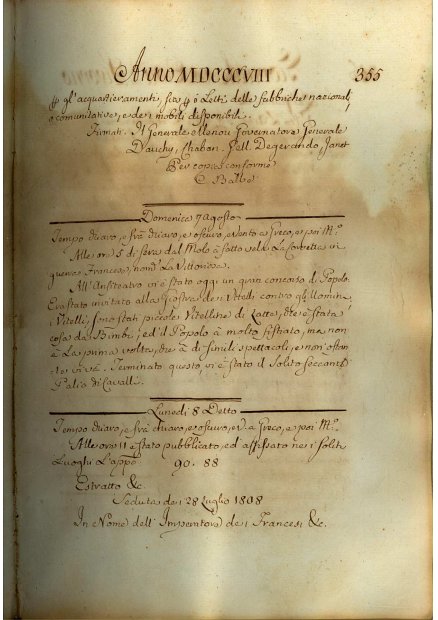 Anno MDCCCVIII 355
gl'acquartieramenti, sia p i Letti delle fabbriche nazionali,
o comunitative, e dei mobili disponibili.
Firmati. Il Generale Menou Governatore Generale
Dauchy, Chaban. Degerando, Janet
Per copia conforme
C. Balbe
Domenica 7 Agosto
Tempo chiaro, e frà chiaro, e oscuro, vento a Greco, e poi M.º
Alle ore 5 di sera dal Molo à fatto vela La Corvetta di
guerra Francese, nom.ª La Vittoriosa.
All'Anfiteatro vi è stato oggi un gran concorso di Popolo.
Era stato invitato alla Giostra dei Vitelli contro gl'Uomini,
i Vitelli, sono stati piccole Vitelline di Latte, che è stata
cosa da Bimbi, ed il Popolo à molto fistiato, ma non
è La prima volta, che à di simili spettacoli, e non ostan-
te vi và. Terminato questo, vi è stato il Solito seccante
Palio di Cavalli.
Lunedi 8 Detto
Tempo chiaro, e frà chiaro, e oscuro, v.º a Greco, e poi M.º
Alle ore 11 è stato pubblicato, ed affissato nei soliti
Luoghi L'app.º 90. 88
Estratto &c.
Seduta dei 28 Luglio 1808
In Nome dell'Imperatore dei Francesi &c.